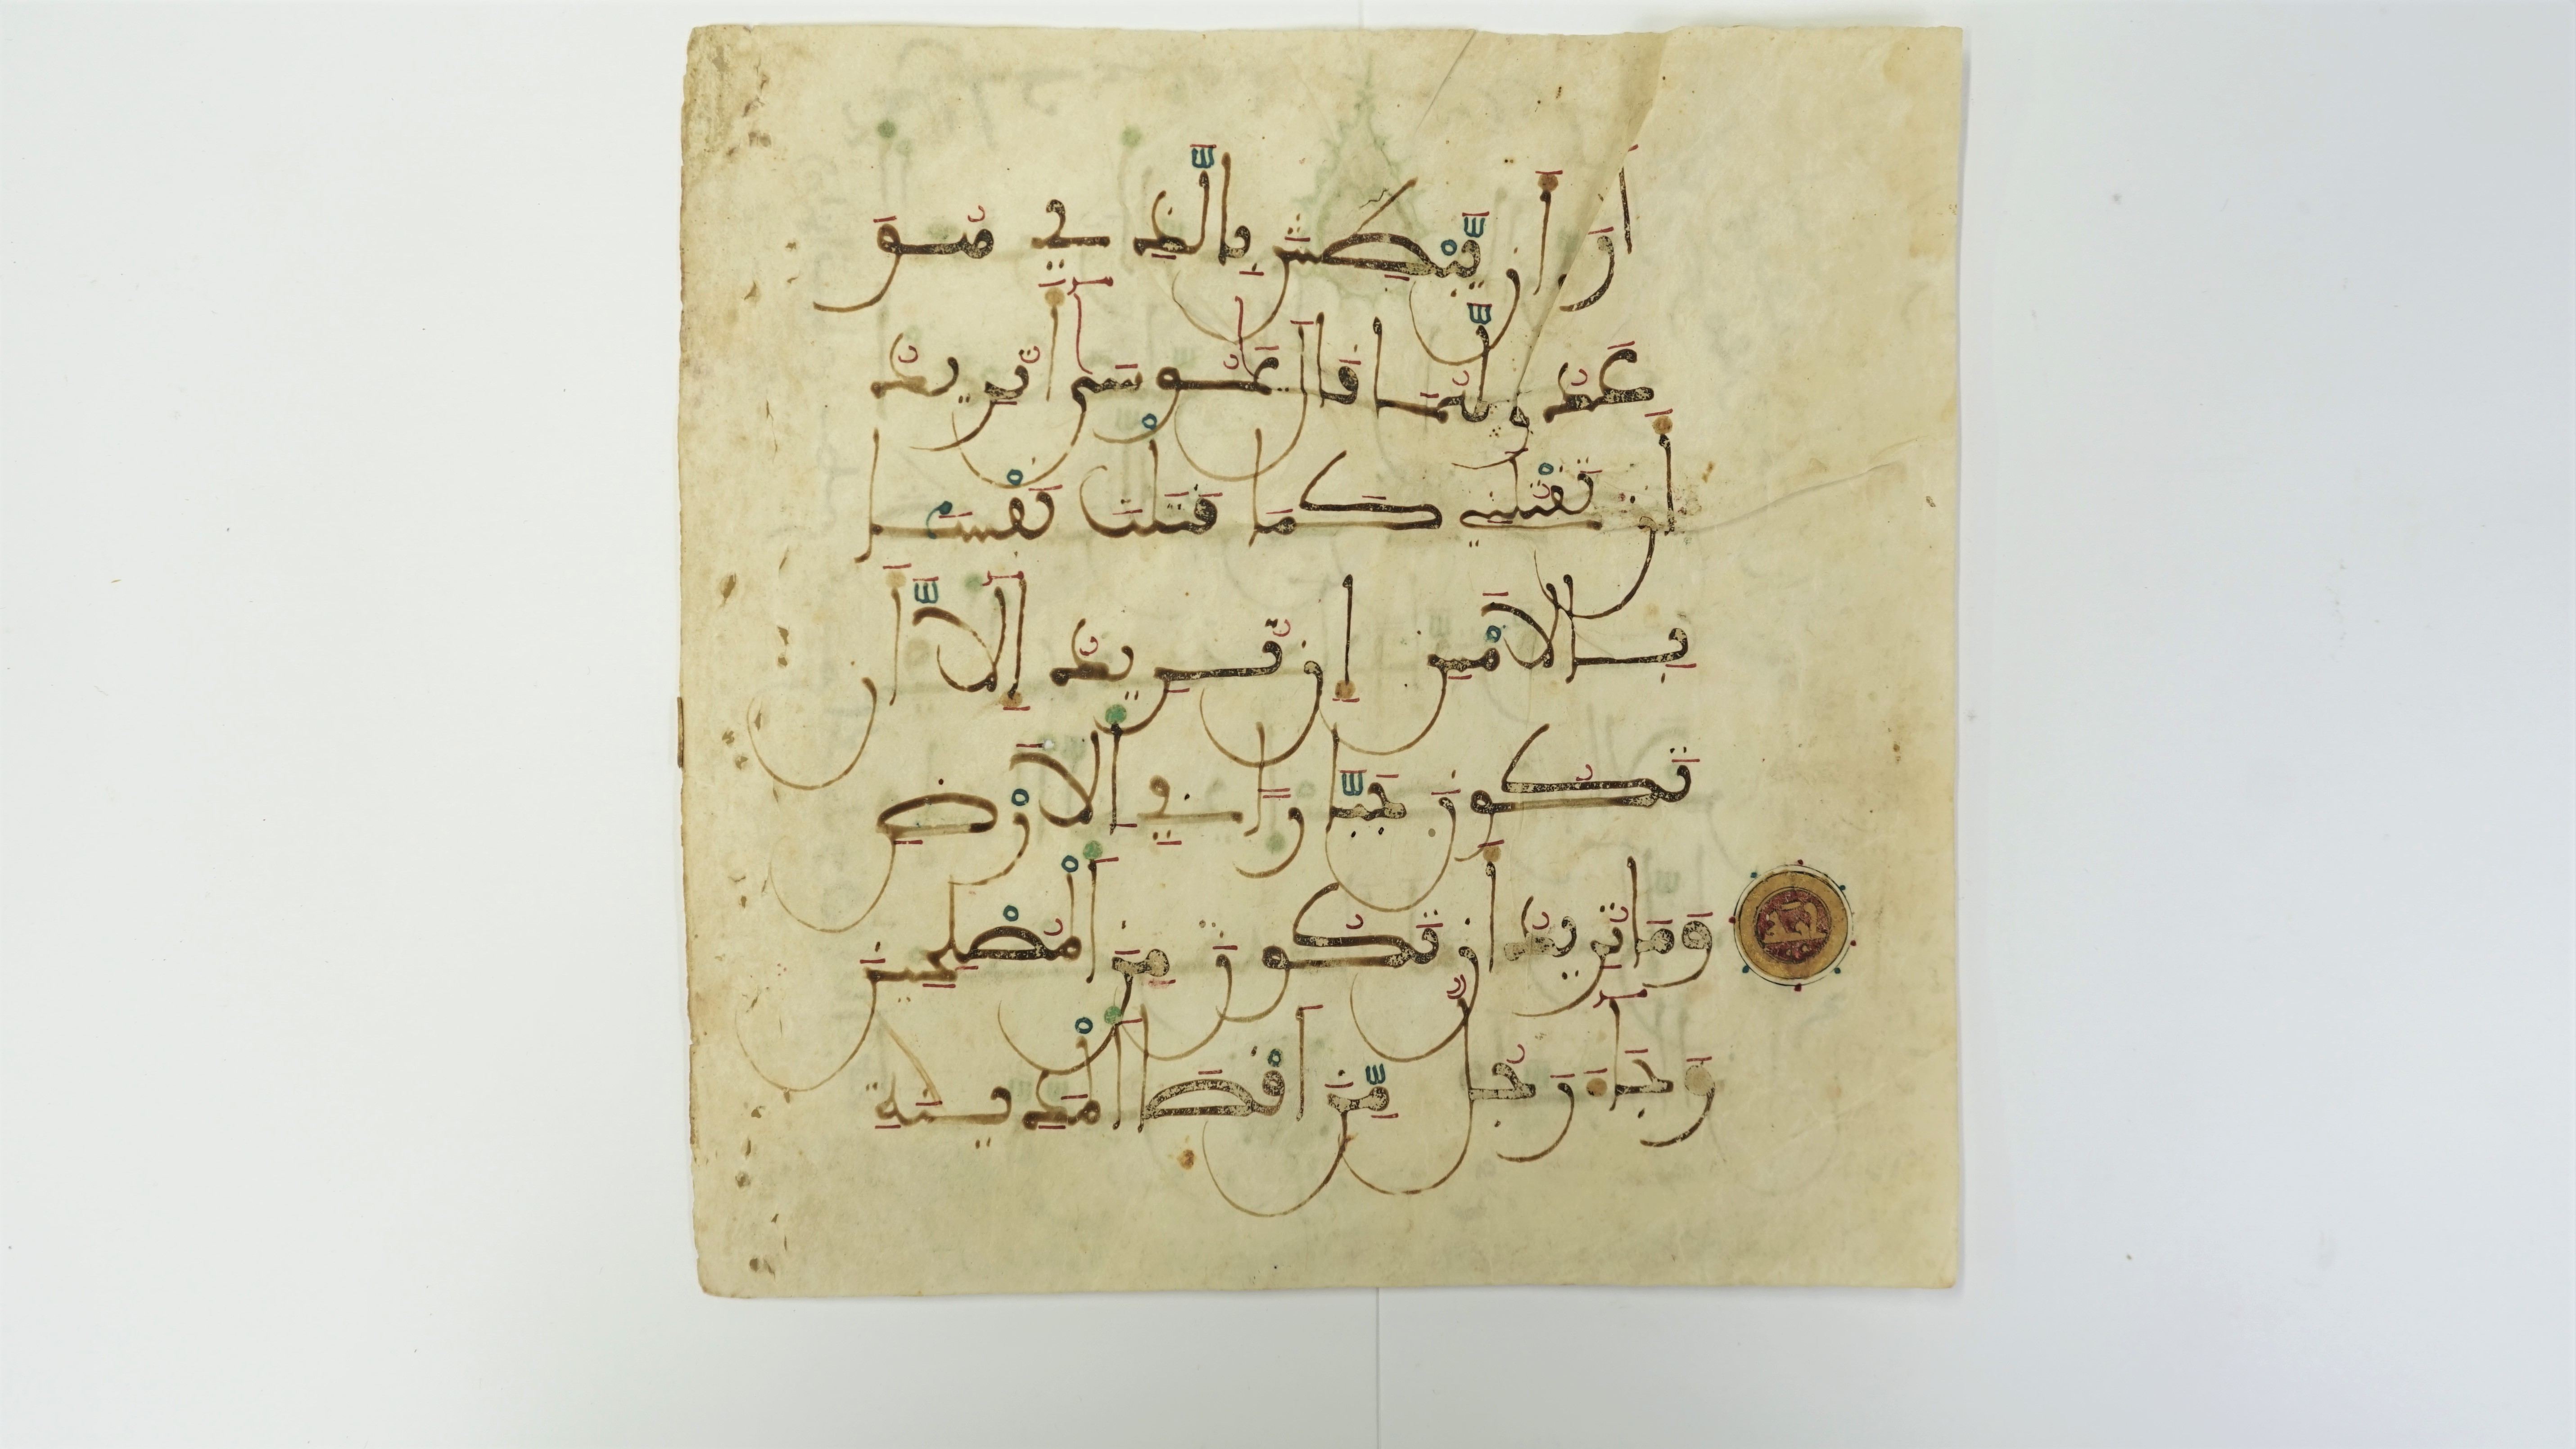 أَن يَّبْطِشَ بِالَّذِي هُوَ
عَدُوٌّ لَّهُمَا قَالَ يَٰمُوسَىٰٓ أَتُرِيدُ
أَن تَقْتُلَنِي كَمَا قَتَلْتَ نَفْسًا
بِالَامْسِ إِن تُرِيدُ إِلَّآ أَن
تَكُونَ جَبَّارًا فِي الَارْضِ
وَمَا تُرِيدُ أَن تَكُونَ مِنَ الْمُصْلِحِينَ
وَجَآءَ رَجُلٌ مِّنَ اَقْصَا الْمَدِينَةِ